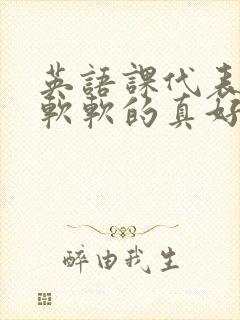 英語課代表
軟軟的真好
醉由我生